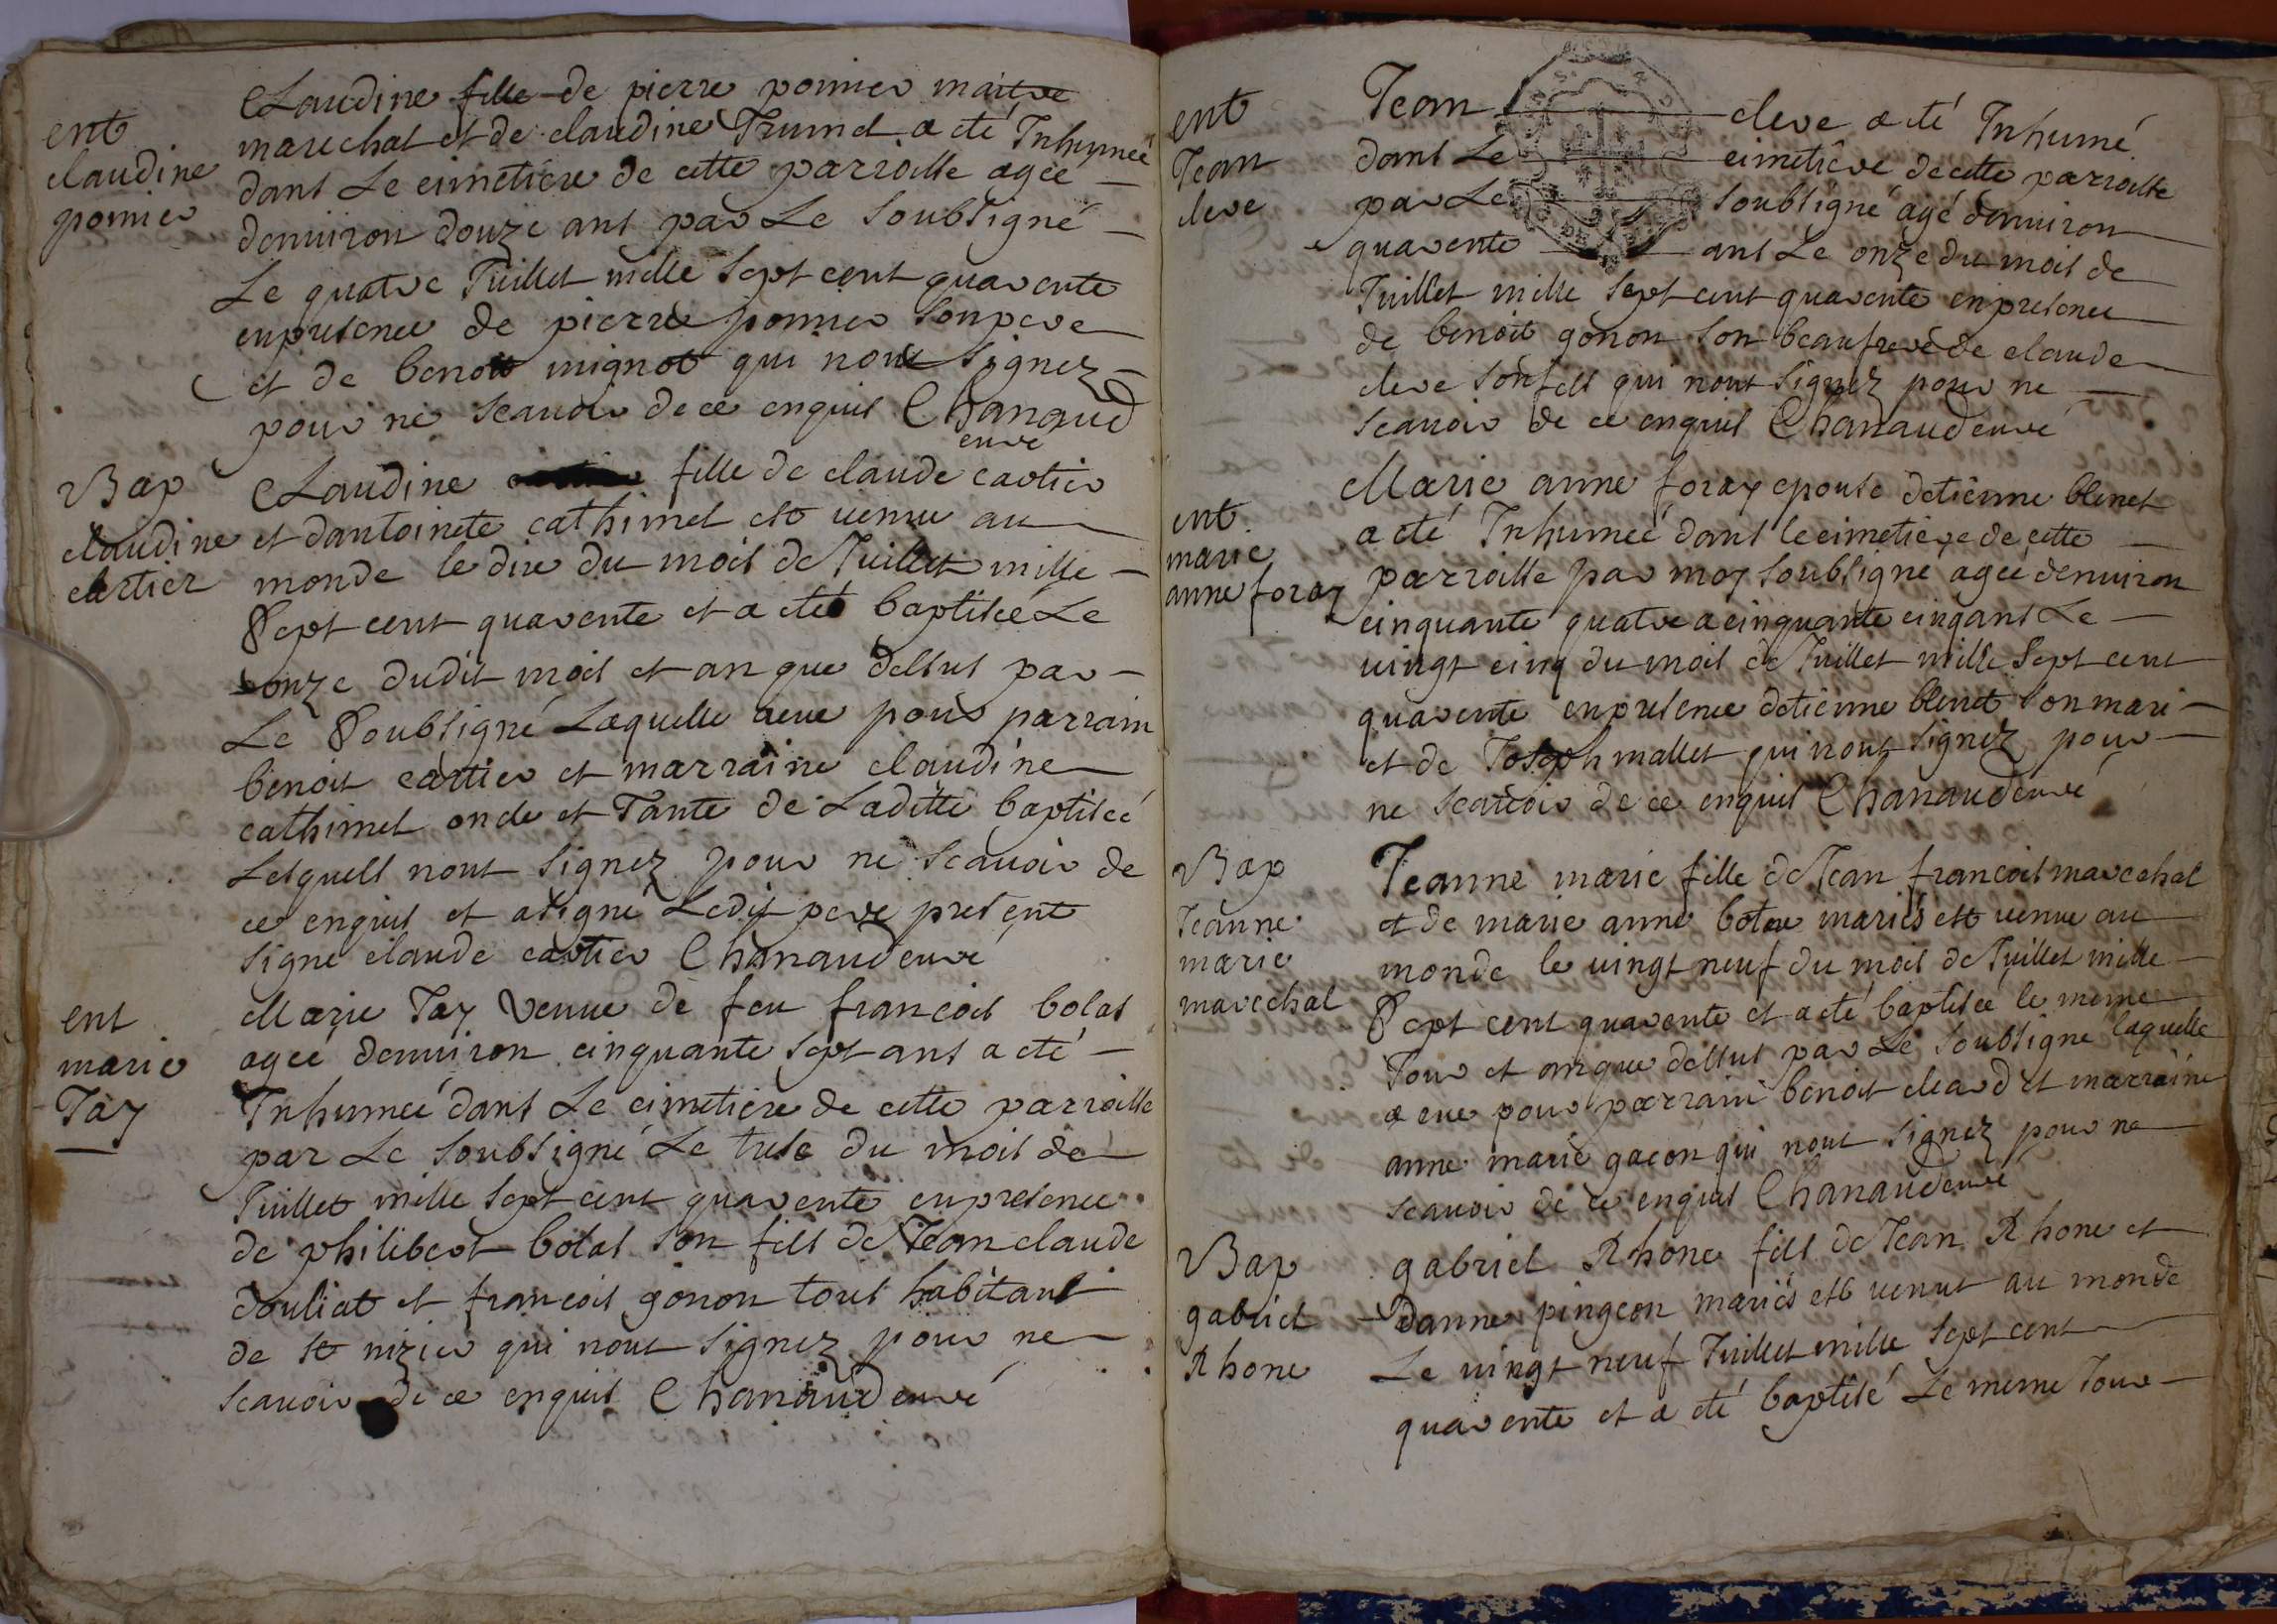 ent
claudine
ponier
Claudine fille de pierre ponier maitre
marechal et de claudine Trumel a eté Inhumeé
dans Le cimetiere de cette parroisse agée
denuiron douze ans par Le Soubsigné
Le quatre Juillet mille Sept cent quarente
enpresence de pierre ponier Sonpere
et de benoit mignot qui nont Signez
pour ne scauoir de ce enquis Chanaud
curé
Bap
claudine
cartier
Claudine fille de claude cartier
et dantoinete cathimel est uenue au
monde le dix du mois de Juillet mille
Sept cent quarente et a eté baptisée Le
onze dudit mois et an que dessus par
Le Soubsigné Laquelle aeue pour parrain
benoit cartier et marraine claudine
cathimel oncle et Tante de Laditte baptiseé
Lesquels nont Signez pour ne scauoir de
ce enquis et asigné Ledit pere present
signé claude cartier Chanaud curé
ent
marie
Jay
Marie Jay Veuue de feu francois bolas
ageé denuiron cinquante sept ans a eté
Inhumeé dans Le cimetiere de cette parroisse
par Le Soubsigné Le trese du mois de
Juillet mille Sept cent quarente enpresence
de philibert bolas son fils de Jean claude
douliat et francois gonon tous habitans
de st nizier qui nont Signez pour ne
scauoir de ce enquis Chanaud curé
ent
Jean
cleve
Jean cleve a eté Inhumé
dans Le cimetiere decette parroisse
par Le Soubsigné agé denuiron
quarente ans Le onze du mois de
Juillet mille Sept cent quarente enpresence
de benoit gonon Son beaufrere de claude
cleve Sonfils qui nont Signez pour ne
scauoir de ce enquis Chanaud curé
ent
marie
anne foray
Marie anne foray epouse detienne blenet
a eté Inhumeé dans lecimetiere de cette
parroisse par moy Soubsigné agee denuiron
cinquante quatre a cinquante cinqans Le
uingt cinq du mois de Juillet mille Sept cent
quarente enpresence detienne blenet Sonmari
et de Joseph mallet qui nont Signez pour
ne scauoir de ce enquis Chanaud curé
Bap
Jeanne
marie
marechal
Jeanne marie fille de Jean francois marechal
et de marie anne botou mariés est uenue au
monde le uingt neuf du mois de Juillet mille
Sept cent quarente et a eté baptiseé le meme
Jour et anque dessus par Le Soubsigne laquelle
a eue pour parrain benoit cleard et marraine
anne marie gacon qui nont Signez pour ne
scauoir de ce enquis Chanaud curé
Bap
gabriel
Rhone
gabriel Rhone fils de Jean Rhone et
Danne pingeon mariés est uenut au monde
Le uingt neuf Juillet mille Sept cent
quarente et a eté baptisé Le meme Jour